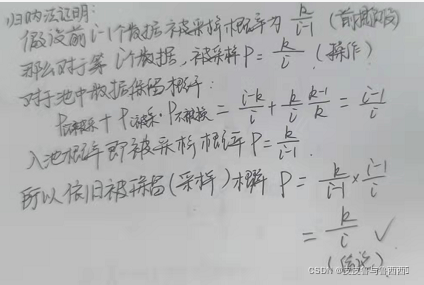 归纳法证明:
假设前i-1个数据被采样概率为 k/i-1 (前期假设)
那么对于第i个数据,被采样P=k/i (操作)
对于池中数据保留概率:
Pi没被采+Pi被采·P不被换= i-k/i + k/i k-1/k = i-1/i
入池概率即被采样概率P=k/i-1
所以依旧被保留(采样)概率 P= k/i-1 × i-1/i
= k/i ✓
CSDN @皮皮君与鲁西西